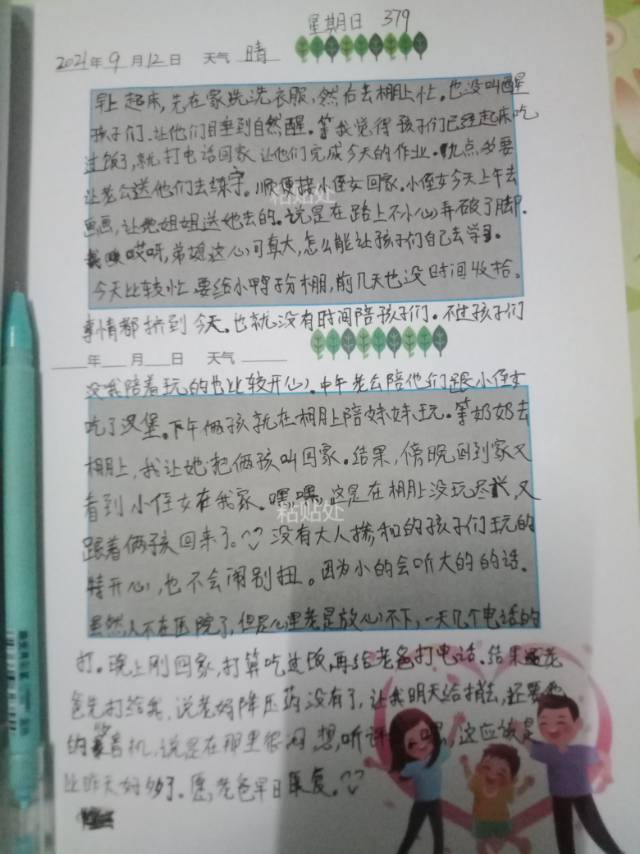 星期日 379
2021年9月12日 天气 晴
早上起床,先在家洗洗衣服,然后去棚上忙。也没叫醒
孩子们、让他们自睡到自然醒。等我觉得孩子们已经起床吃
过饭了,就打电话回家让他们完成今天的作业。九点多要
让老公送他们去练字。顺便接小侄女回家。小侄女今天上午去
画画,让她姐姐送她去的。说是在路上不小心弄破了脚。
哎呀,弟媳这心可真大,怎么能让孩子们自己去学习。
今天比较忙 要给小鸭子分棚,前几天也没时间收拾。
粘贴处
事情都挤到今天。也就没有时间陪孩子们。不过孩子们
年 月 日 天气
没我陪着玩的也比较开心。中午老公陪他们跟小侄女
吃了汉堡。下午俩孩就在棚上陪妹妹玩。等奶奶去
棚上,我让她把俩孩叫回家。结果,傍晚回到家又
看到小侄女在我家。嘿,嘿,这是在棚上没玩尽兴,又
粘贴处
跟着俩孩回来了。没有大人掺和的孩子们玩的
特开心,也不会闹别扭。因为小的会听大的的话。
虽然人不在医院了,但是心里老是放心不下,一天几个电话的
打。晚上刚回家,打算吃过饭,再给老爸打电话。结果老
爸先打给我,说老妈降压药没有了,让我明天给捎去,还要
的 音机,说是在那里很闷 想,听评 嘿,这应该是
比昨天好多了。愿,老爸早日康复。